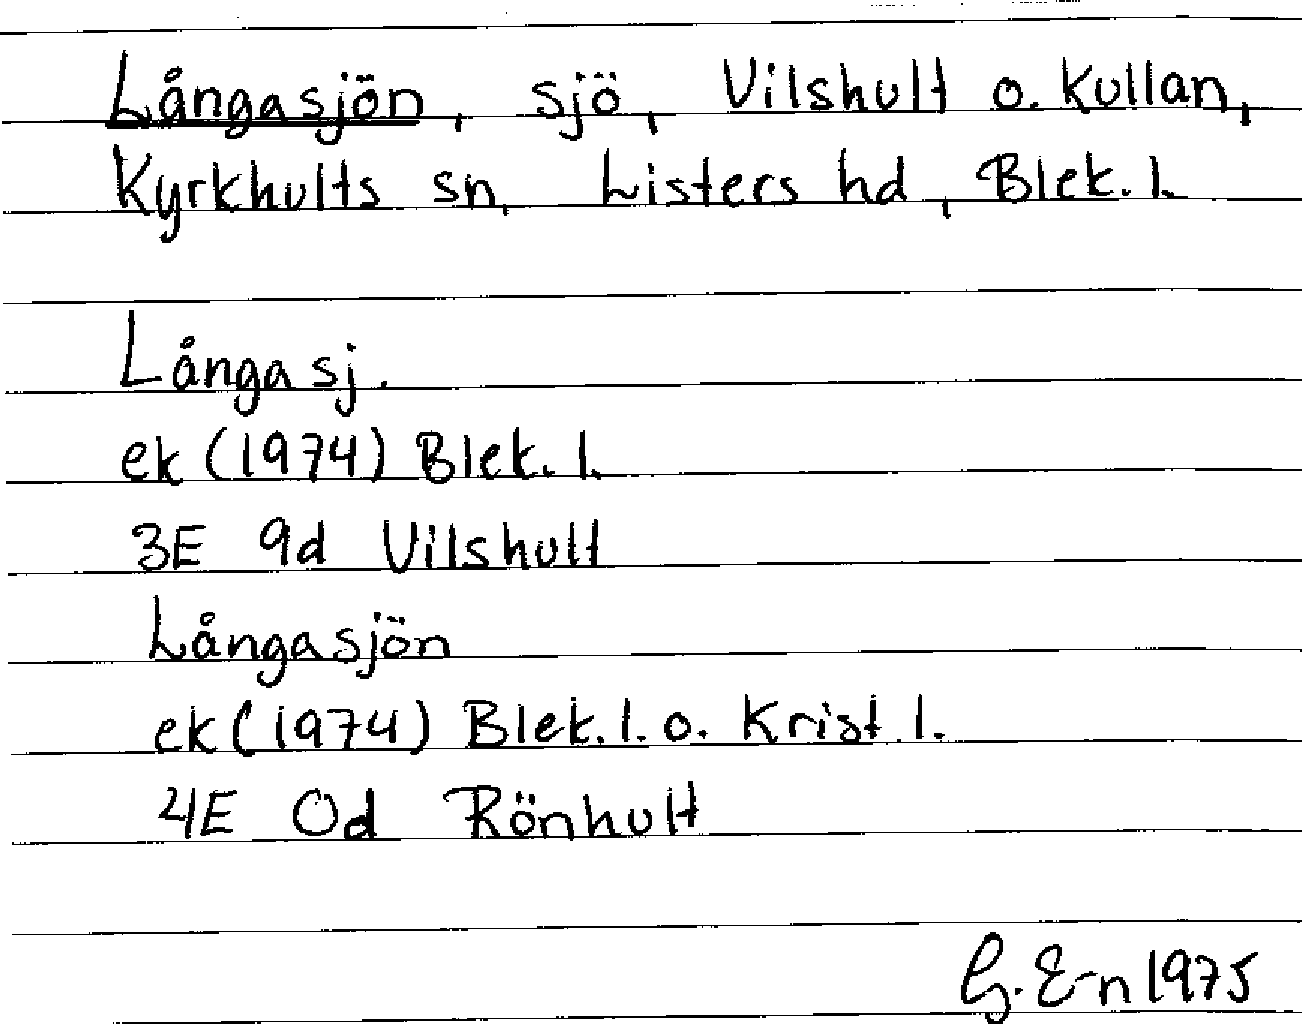 Långasjön, sjö, Vilshult o. Kullan,
Kyrkhults sn, Listers hd, Blek. l.
Långasj.
ek (1974) Blek. l.
3E 9d Vilshult
Långasjön
ek (1974) Blek. l. o. Krist l.
4E 0d Rönhult
G. E-n 1975